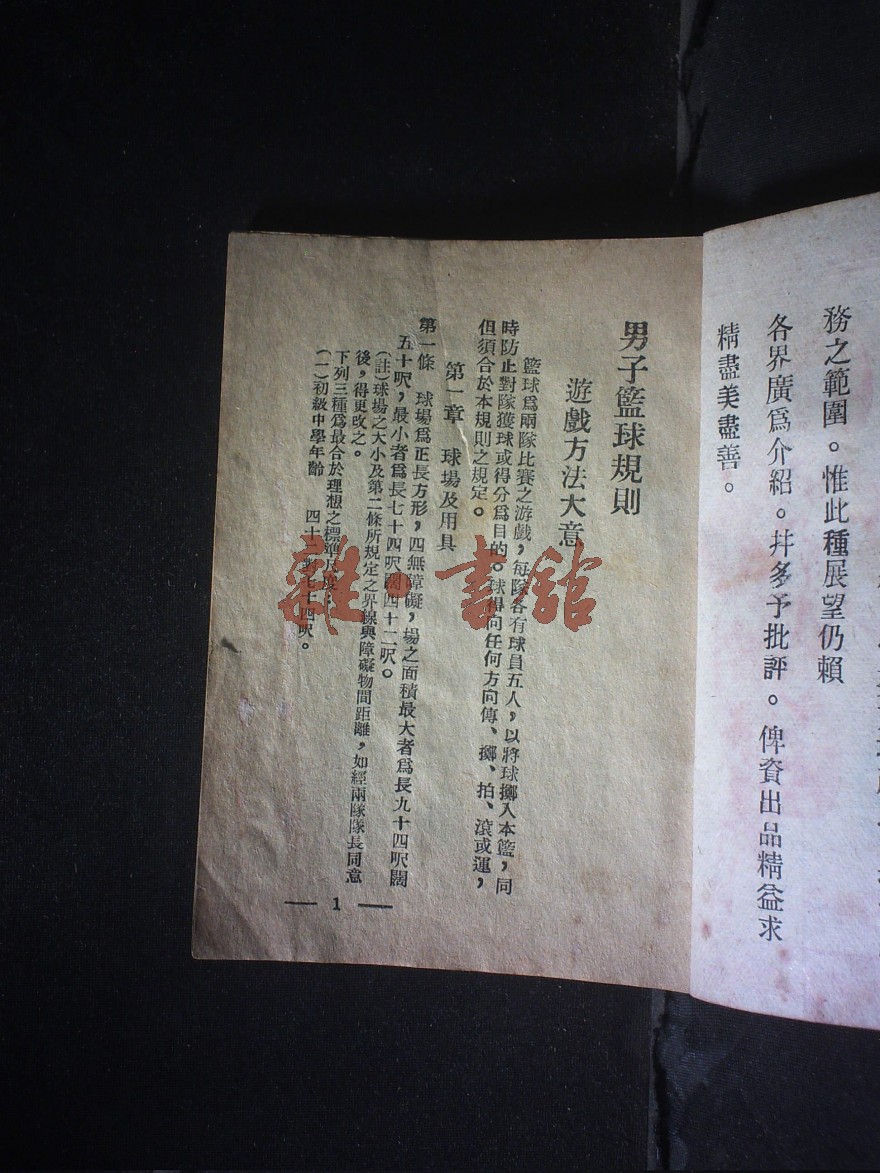 務之範圍。惟此種展望仍賴
各界廣爲介紹。幷多予批評。俾資出品精益求
精盡美盡善。
男子籃球規則
遊戲方法大意
籃球爲兩隊比賽之游戲，每隊各有球員五人，以將球擲入本籃，同
時防止對隊獲球或得分爲目的。球得向任何方向傳、擲、拍、滾或運，
但須合於本規則之規定。
第一章 球場及用具
第一條 球場爲正長方形，四無障礙，場之面積最大者爲長九十四呎闊
五十呎，最小者爲長七十四呎闊四十二呎。
(註)球場之大小及第二條所規定之界線與障礙物間距離，如經兩隊隊長同意
後，得更改之。
下列三種爲最合於理想之標準尺度
(一)初級中學年齡 四十二呎七十四呎。
1
雜·書館